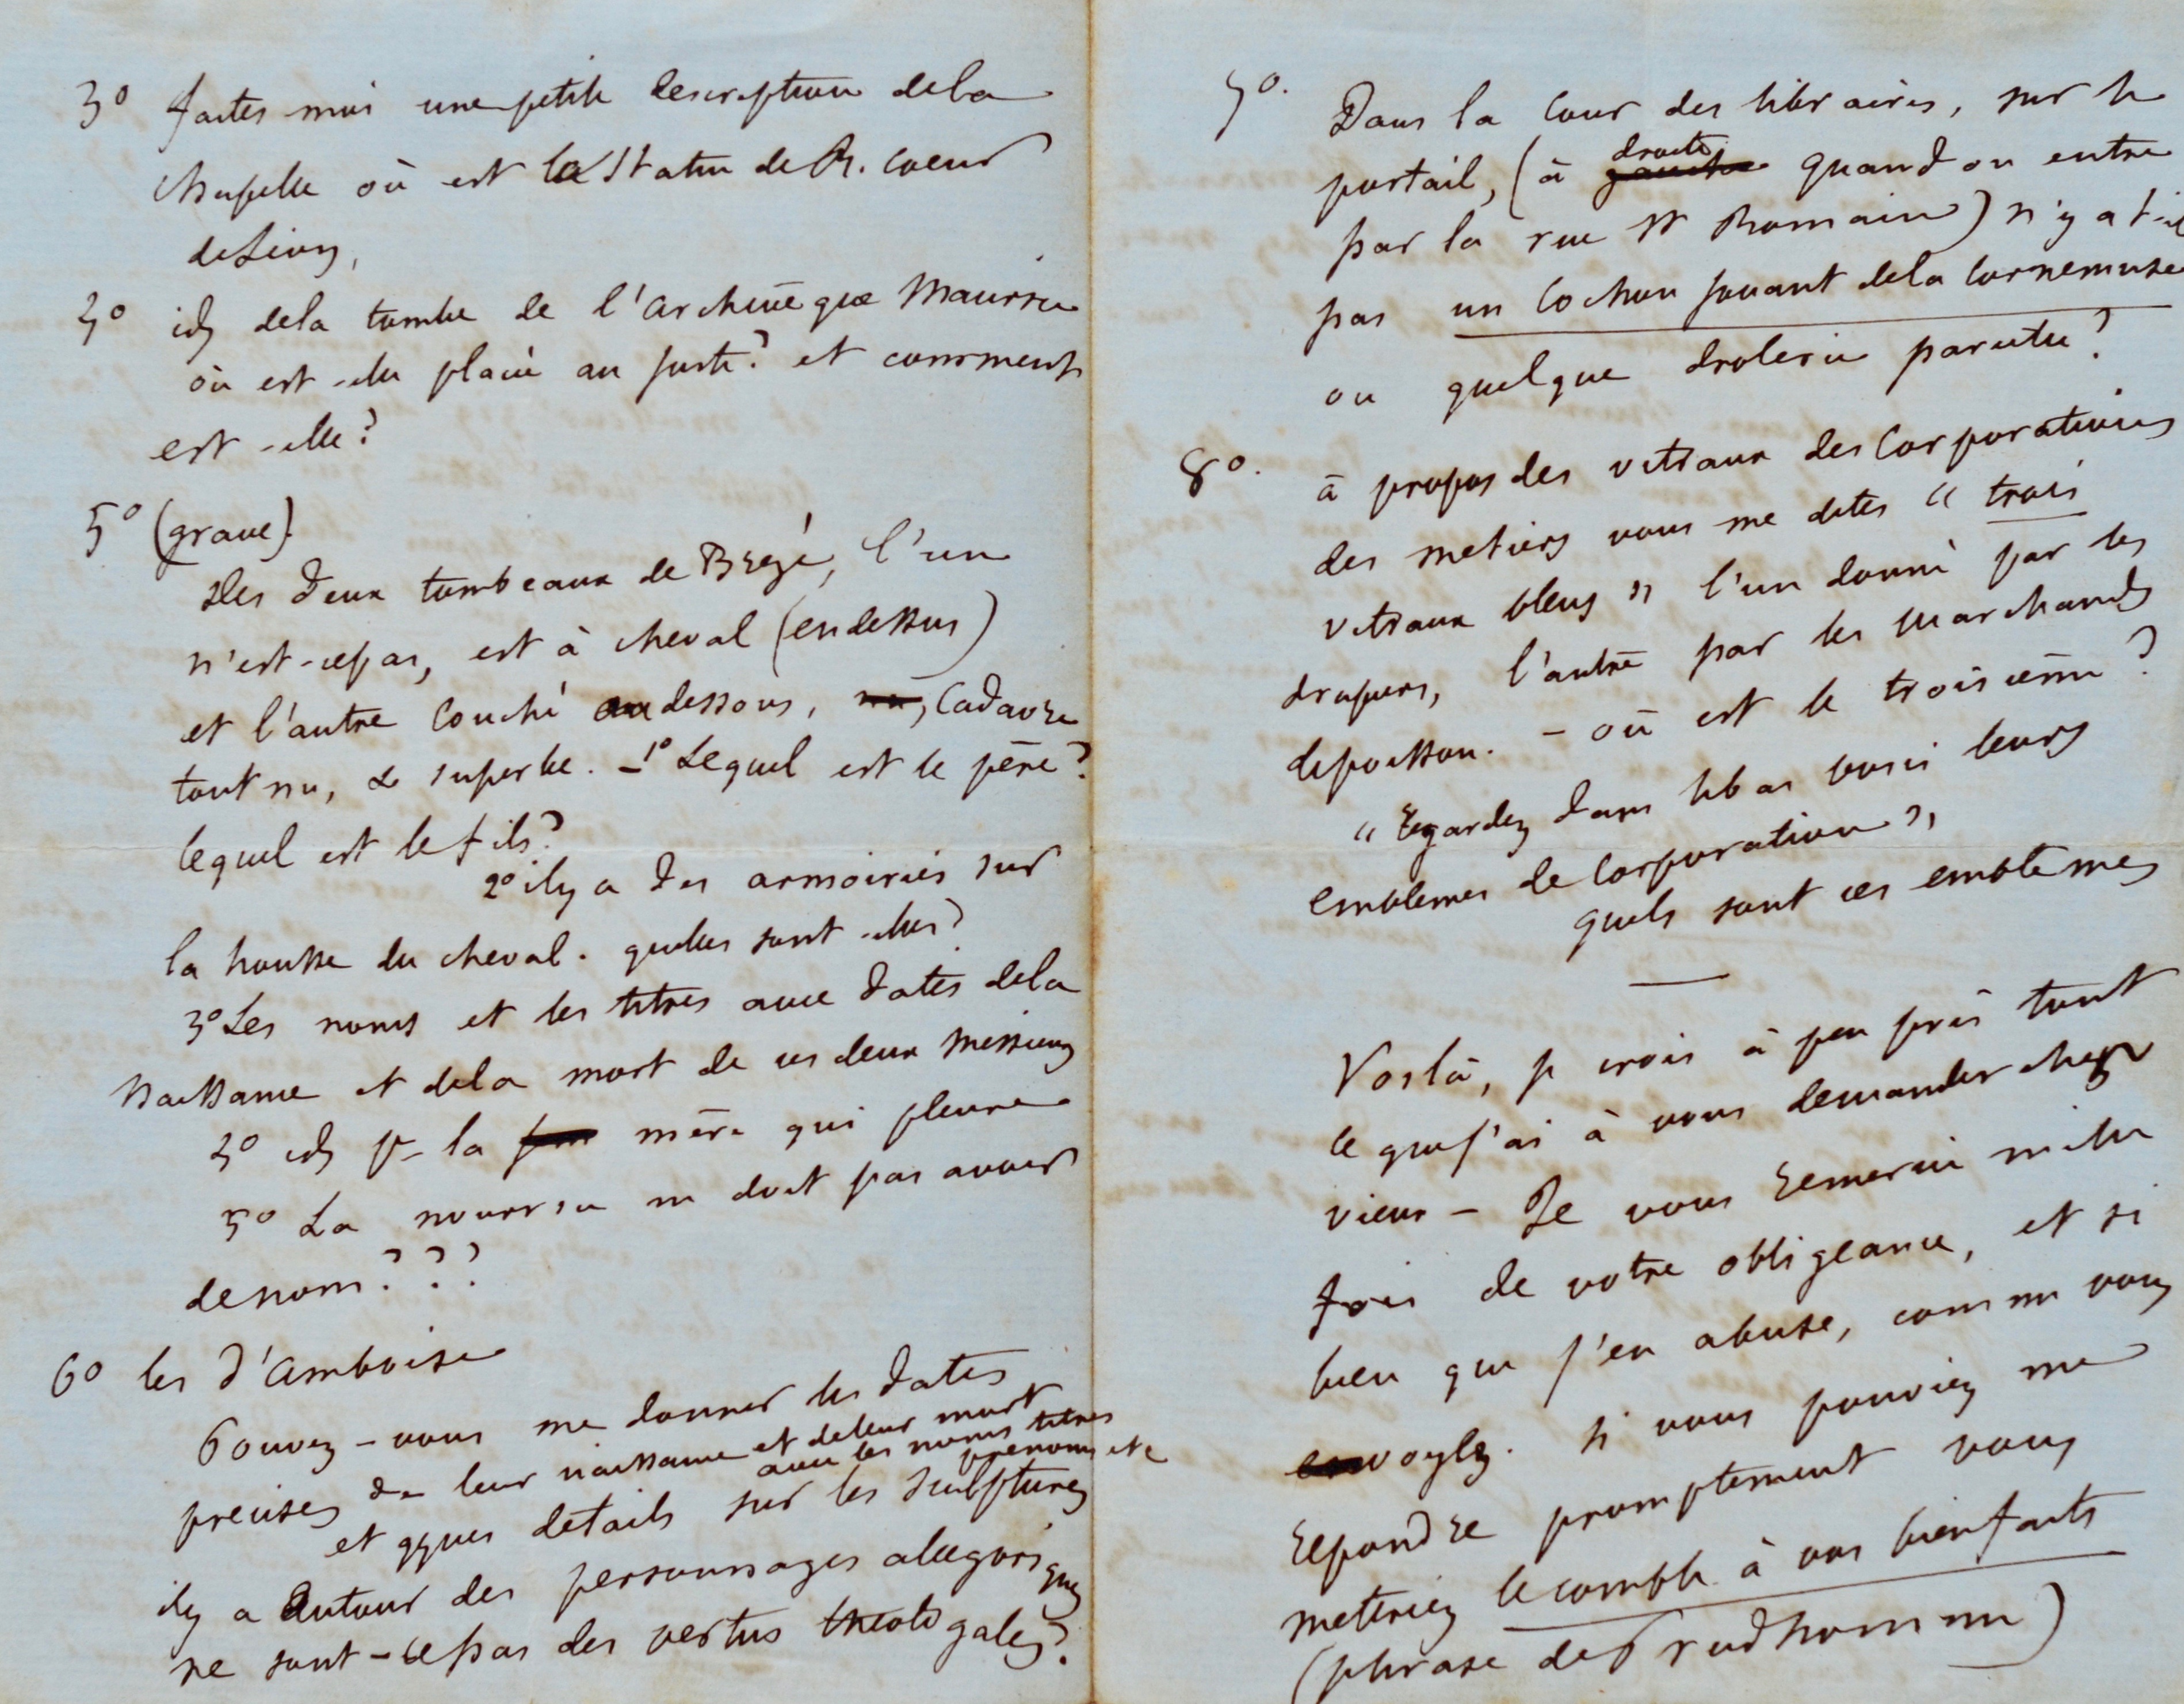 3° faites moi une petite description dela
chapelle où est la statue de R. Coeur
de Lion,
4° id dela tombe de l'archevêque Maurice
où est-elle placée au juste? et comment
est-elle?
5° (grave).
Les deux tombeaux de Brezé, l'un
n'est-ce pas, est à cheval (en dessus)
et l'autre couché au dessous, nu, cadavre
tout nu, & superbe. – 1° Lequel est le père?
lequel est le fils?
2° il y a des armoiries sur
la housse du cheval. quelles sont-elles?
3° Les noms et les titres avec dates dela
naissance et dela mort de ces deux messieurs
4° id pr la mère qui pleure
5° La nourrice ne doit pas avoir
de nom???
6° les d'Amboise
Pouvez-vous me donner les dates
precises de leur naissance et de leur mort
avec les noms titres
prenoms etc
et qques details sur les sculptures
il y a autour des personnages allegoriques
ne sont-ce pas des vertus theologales?
7°. Dans la cour des libraires, sur le
portail, (à gauche droite quand on entre
par la rue St Romain) n'y a t-il
pas un cochon jouant dela cornemuse
ou quelque drolerie pareille?
8°. à propos des vitraux des corporations
des metiers vous me dites « trois
vitraux bleus » l'un donné par les
drapiers, l'autre par les marchands
de poisson. – où est le troisième?
« Regardez dans le bas voici leurs
emblemes de corporation »,
quels sont ces emblemes
—
Voilà, je crois à peu près tout
ce que j'ai à vous demander cher
vieux – Je vous remercie mille
fois de votre obligeance, et si
bien que j'en abuse, comme vous
voyez. Si vous pouviez me
repondre promptement vous
metteriez le comble à vos bienfaits
(phrase de Prudhomme)